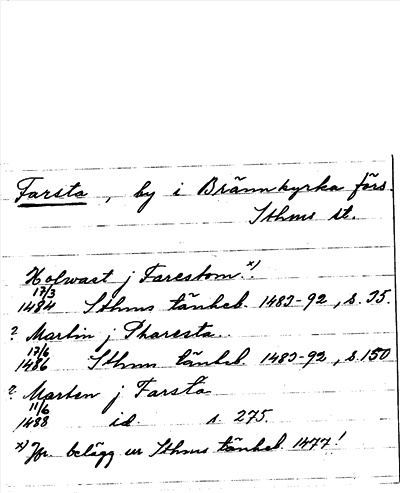 Farsta, by i Brännkyrka förs.
Sthms st.
Holwast j Farestom.x)
17/3
1484 Sthms tänkeb. 1483-92, s. 35.
? Martin j Pharesta.
17/6
1486 Sthms tänkeb. 1483-92, s. 150
? Marten j Farsta
11/6
1488 id. s. 275.
x) Jfr. belägg ur Sthms tänkeb. 1477!